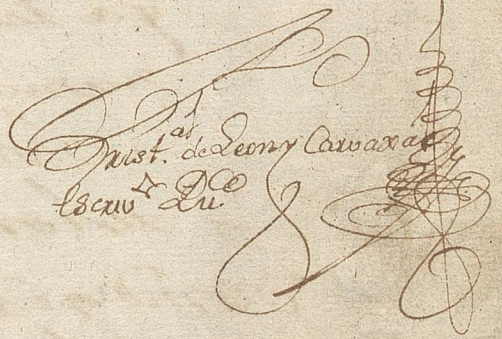 Christ.al de Leon y Carvaxal
Escriv.º Pu.co